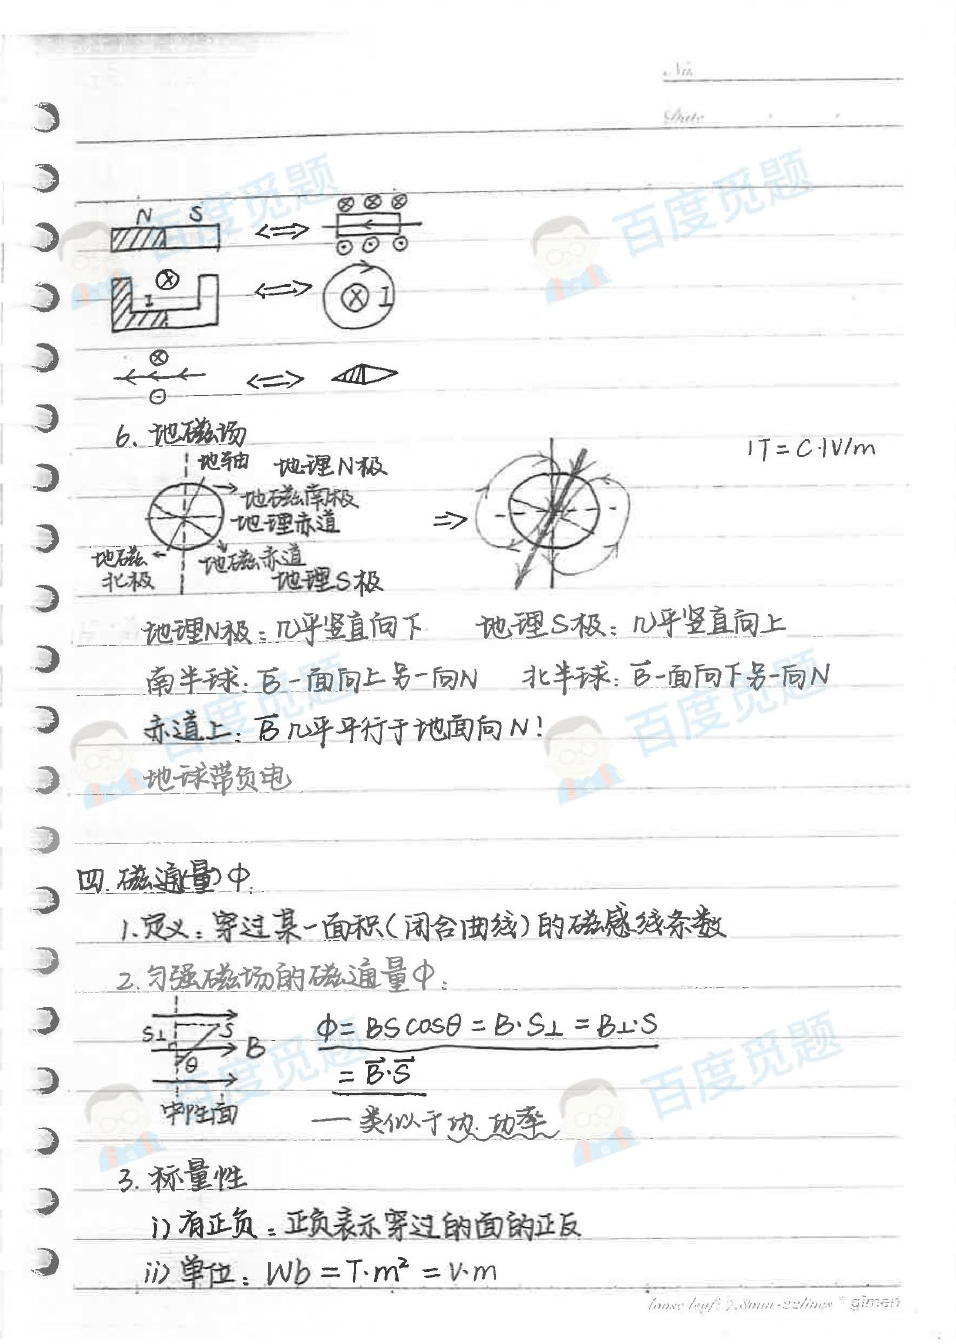 No.
Date
N S
I
I
6. 地磁场
地轴 地理N极
1T=C·1V/m
地磁南极
地理赤道
地磁北极
地磁赤道
地理S极
地理N极：几乎竖直向下 地理S极：几乎竖直向上
南半球：B一面向上另一向N 北半球：B一面向下另一向N
赤道上：B几乎平行于地面向N！
地球带负电
四.磁通(量)Φ.
1.定义：穿过某一面积(闭合曲线)的磁感线条数
2.匀强磁场的磁通量Φ：
S⊥ S B θ
中性面
Φ=BScosθ=B·S⊥=B⊥·S
=B⃗·S⃗
——类似于功.功率
3.标量性
i)有正负：正负表示穿过的面的正反
ii)单位：Wb=T·m²=V·m
loose leaf: 7.8mm·22lines gimen
百度觅题
百度觅题
百度觅题
百度觅题
百度觅题
百度觅题